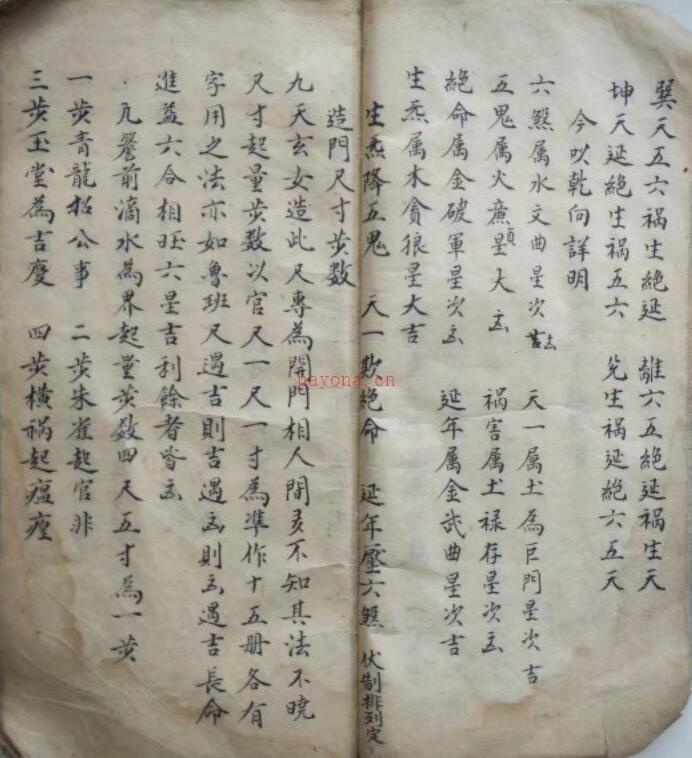 巽天五六祸生絕延　離六五絕延祸生天
坤天延絕生祸五六　兌生祸延絕六五天
今以乾向詳明
六煞属水文曲星次凶　天一属土為巨門星次吉
五鬼属火亷貞星大凶　祸害属土禄存星次凶
絕命属金破軍星次凶　延年属金武曲星次吉
生炁属木貪狼星大吉
生炁降五鬼　天一欺絕命　延年壓六煞　伏制排列定
造門尺寸步数
九天玄女造此尺專為開門相人間多不知其法不曉
尺寸起量步数以官尺一尺一寸為準作十五册各有
字用之法亦如魯班尺遇吉則吉遇凶則凶遇吉長命
進益六合相旺六星吉利餘者皆凶
凡簷前滴水為界起量步数四尺五寸為一步
一步青龍招公事　二步朱雀起官非
三步玉堂為吉慶　四步橫祸起瘟㾮
nayona.cn